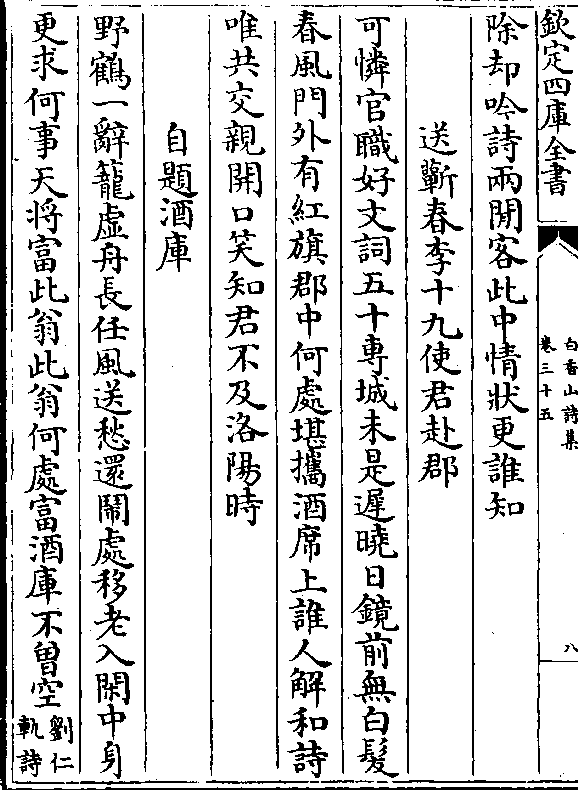 欽定四庫全書
白香山詩集
卷三十五
八
除却吟詩兩閒客此中情狀更誰知
送蘄春李十九使君赴郡
可憐官職好文詞五十専城未是遲曉日鏡前無白髮
春風門外有紅旗郡中何處堪攜酒席上誰人解和詩
唯共交親開口笑知君不及洛陽時
自題酒庫
野鶴一辭籠虛舟長任風送愁還鬧處移老入閑中身
更求何事天將富此翁此翁何處富酒庫不曽空
劉仁
軌詩